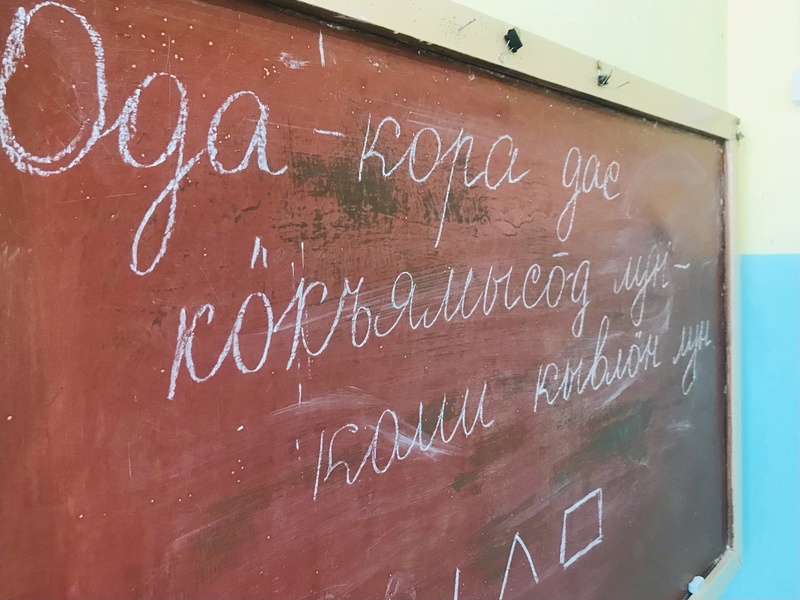 Ода-кора дас
кӧкъямысōд лун-
коми кывлӧн лун